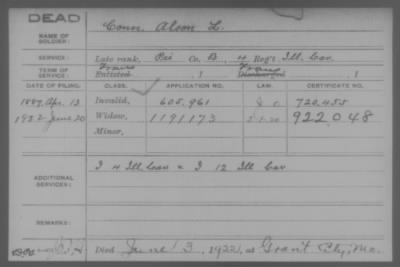 DEAD
NAME OF SOLDIER: Conn, Alson L.
SERVICE: Late rank, Pvt Co. B, 4 Reg't Ill. Cav.
TERM OF SERVICE: Enlisted , 1 Discharged , 1
DATE OF FILING. CLASS. APPLICATION NO. LAW. CERTIFICATE NO.
1887, Apr. 13 Invalid, 605,961 720,455
1922 June 20 Widow, 1191173 922,048
Minor,
ADDITIONAL SERVICES: I 4 Ill. Cav & I 12 Ill Cav
REMARKS:
Died June 13, 1922, at Grant City, Mo.